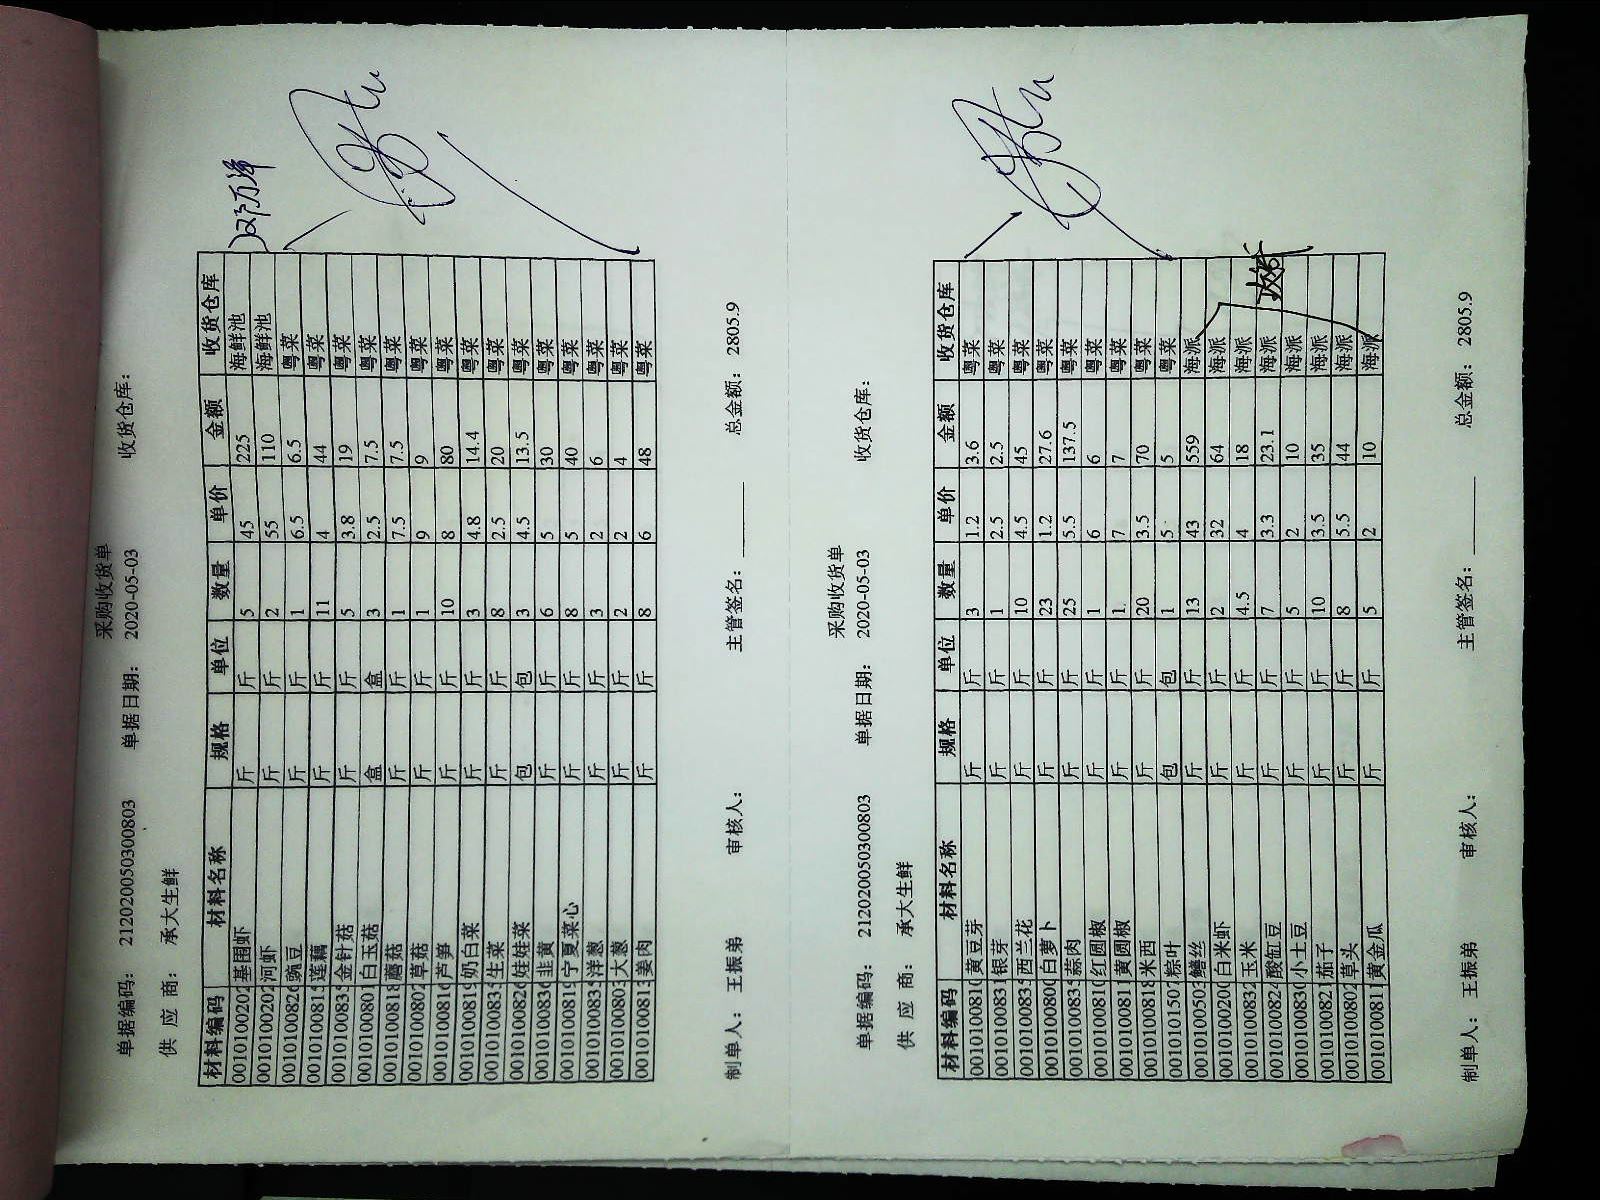 采购收货单
单据编码: 21202005050300803 单据日期: 2020-05-03 收货仓库:
供 应 商: 承大生鲜
材料编码 材料名称 规格 单位 数量 单价 金额 收货仓库
0010100202 基围虾 斤 斤 5 45 225 海鲜池
0010100202 河虾 斤 斤 2 55 110 海鲜池
0010100826 豌豆 斤 斤 1 6.5 6.5 粤菜
0010100815 莲藕 斤 斤 11 4 44 粤菜
0010100833 金针菇 斤 斤 5 3.8 19 粤菜
0010100801 白玉菇 盒 盒 3 2.5 7.5 粤菜
0010100818 蘑菇 斤 斤 1 7.5 7.5 粤菜
0010100802 草菇 斤 斤 1 9 9 粤菜
0010100816 芦笋 斤 斤 10 8 80 粤菜
0010100819 奶白菜 斤 斤 3 4.8 14.4 粤菜
0010100835 生菜 斤 斤 8 2.5 20 粤菜
0010100826 娃娃菜 包 包 3 4.5 13.5 粤菜
0010100836 韭黄 斤 斤 6 5 30 粤菜
0010100819 宁夏菜心 斤 斤 8 5 40 粤菜
0010100835 洋葱 斤 斤 3 2 6 粤菜
0010100803 大葱 斤 斤 2 2 4 粤菜
0010100813 姜肉 斤 斤 8 6 48 粤菜
制单人: 王振弟 审核人: 主管签名: 总金额: 2805.9
采购收货单
单据编码: 21202005050300803 单据日期: 2020-05-03 收货仓库:
供 应 商: 承大生鲜
材料编码 材料名称 规格 单位 数量 单价 金额 收货仓库
0010100810 黄豆芽 斤 斤 3 1.2 3.6 粤菜
0010100831 银芽 斤 斤 1 2.5 2.5 粤菜
0010100835 西兰花 斤 斤 10 4.5 45 粤菜
0010100800 白萝卜 斤 斤 23 1.2 27.6 粤菜
0010100835 蒜肉 斤 斤 25 5.5 137.5 粤菜
0010100810 红圆椒 斤 斤 1 6 6 粤菜
0010100811 黄圆椒 斤 斤 1 7 7 粤菜
0010100818 米西 斤 斤 20 3.5 70 粤菜
0010101507 粽叶 包 包 1 5 5 粤菜
0010100503 鳝丝 斤 斤 13 43 559 海派
0010100200 白米虾 斤 斤 2 32 64 海派
0010100832 玉米 斤 斤 4.5 4 18 海派
0010100824 酸缸豆 斤 斤 7 3.3 23.1 海派
0010100830 小土豆 斤 斤 5 2 10 海派
0010100821 茄子 斤 斤 10 3.5 35 海派
0010100802 草头 斤 斤 8 5.5 44 海派
0010100811 黄金瓜 斤 斤 5 2 10 海派
制单人: 王振弟 审核人: 主管签名: 总金额: 2805.9